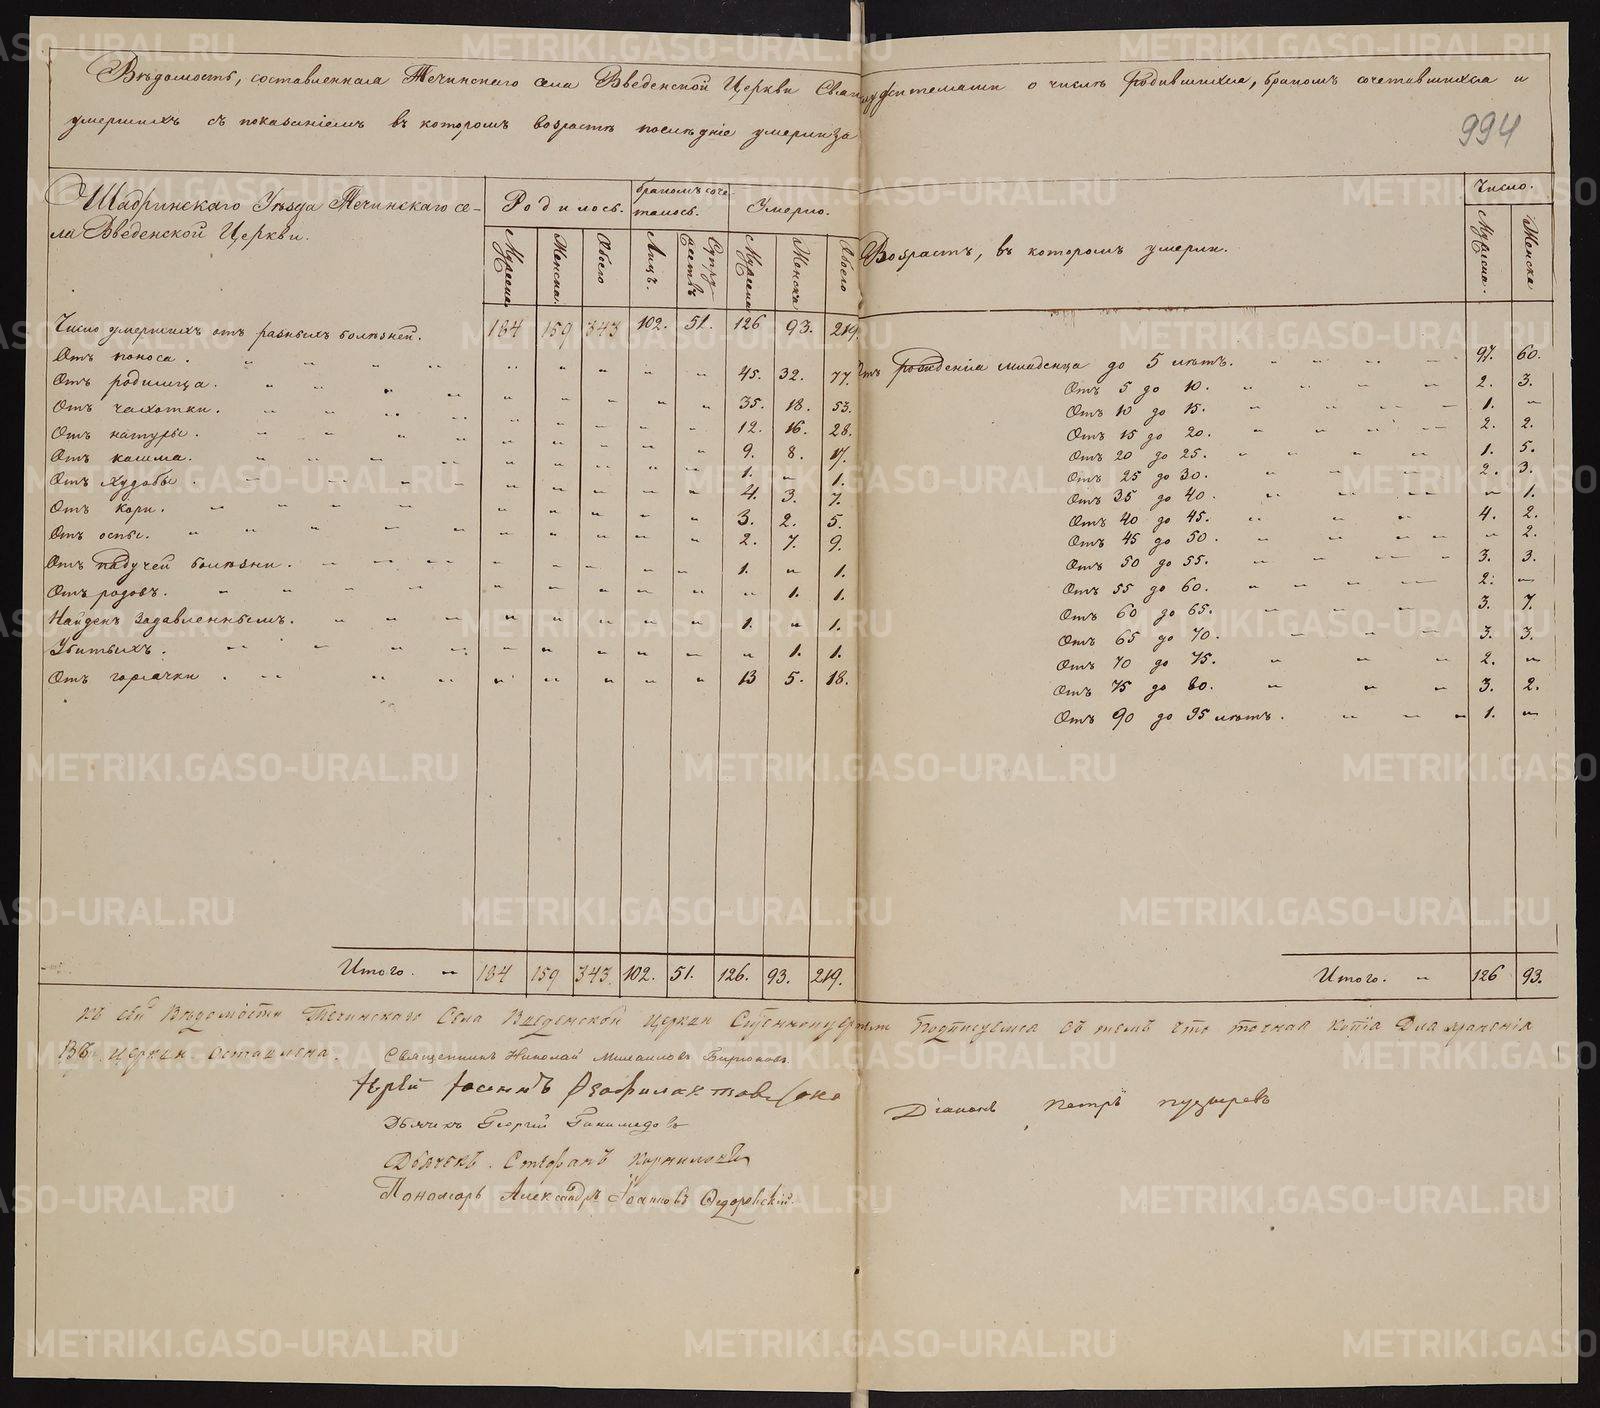 Вѣдомость, составленная Теченскаго села Введенской Церкви Священнослужителями о числѣ родившихся, бракомъ сочетавшихся и
умершихъ съ показаніемъ въ которомъ возрастѣ послѣдніе умерли за
994
Шадринскаго Уѣзда Теченскаго се-
ла Введенской Церкви.
Родилось. бракомъ соче-
талось. Умерло.
Возрастъ, въ которомъ умерли.
Число.
Мужеска Женска Обоего Лицъ. Супружествъ Мужеска Женска Обоего
Мужеска. Женска
Число умершихъ отъ разныхъ болѣзней. 184 159 343 102. 51. 126 93. 219.
Отъ поноса. " " " " " " " " " 45. 32. 77.
Отъ родимца. " " " " " " " " " 35. 18. 53.
Отъ чахотки. " " " " " " " " " 12. 16. 28.
Отъ натуры. " " " " " " " " " 9. 8. 17.
Отъ кашля. " " " " " " " " " 1. " 1.
Отъ худобы. " " " " " " " " " 4. 3. 7.
Отъ кори. " " " " " " " " " 3. 2. 5.
Отъ оспы. " " " " " " " " " 2. 7. 9.
Отъ падучей болѣзни. " " " " " " " " 1. " 1.
Отъ родовъ. " " " " " " " " " " 1. 1.
Найденъ задавленнымъ. " " " " " " " " 1. " 1.
Убитыхъ. " " " " " " " " " " 1. 1.
Отъ горячки. " " " " " " " " 13 5. 18.
Отъ рожденія младенца до 5 лѣтъ. " " " " 97. 60.
Отъ 5 до 10. " " " " 2. 3.
Отъ 10 до 15. " " " " 1. "
Отъ 15 до 20. " " " " 2. 2.
Отъ 20 до 25. " " " " 1. 5.
Отъ 25 до 30. " " " " 2. 3.
Отъ 35 до 40. " " " " " 1.
Отъ 40 до 45. " " " 4. 2.
Отъ 45 до 50. " " " " " 2.
Отъ 50 до 55. " " " " 3. 3.
Отъ 55 до 60. " " " " 2. "
Отъ 60 до 65. " " " 3. 7.
Отъ 65 до 70. " " " 3. 3.
Отъ 70 до 75. " " " 2. "
Отъ 75 до 80. " " " 3. 2.
Отъ 90 до 95 лѣтъ. " " " 1. "
Итого. " 184 159 343 102. 51. 126. 93. 219.
Итого. " 126 93.
Къ сей Вѣдомости Теченскаго Села Введенской Церкви подписуемся въ томъ что точная копія для храненія
Въ Церкви оставлена. Священникъ Николай Михаиловъ Бирюковъ
Іерей
Діаконъ Петръ Пузыревъ
Дьячекъ Георгій
Дьячекъ Стефанъ
Пономарь Александръ Іоанновъ Ѳедоровскій.
METRIKI.GASO-URAL.RU